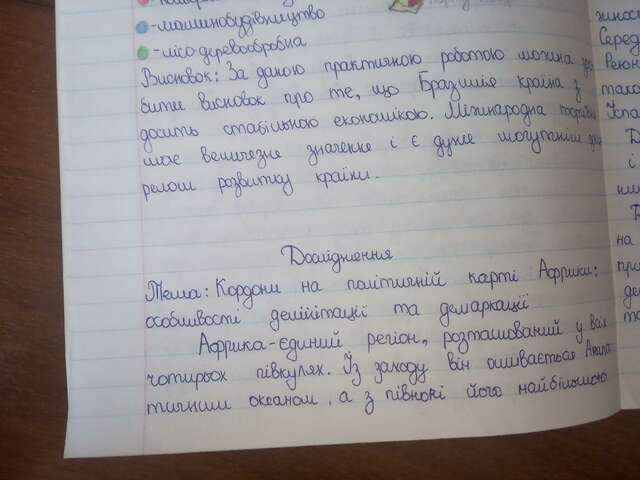 -машинобудівництво
-лісо-деревообробна
Висновок: За даною практичною роботою можна зро
бити висновок про те, що Бразилія країна з
досить стабільною економікою. Міжнародна торгівля
має величезне значення і є дуже могутнім
релом розвитку країни.
Дослідження
Тема: Кордони на політичній карті Африки:
особливості делімітації та демаркації
Африка-єдиний регіон, розташований у всіх
чотирьох півкулях. Із заходу він омивається Атлан
тичним океаном, а з півночі його найбільшою
Серед
і
на